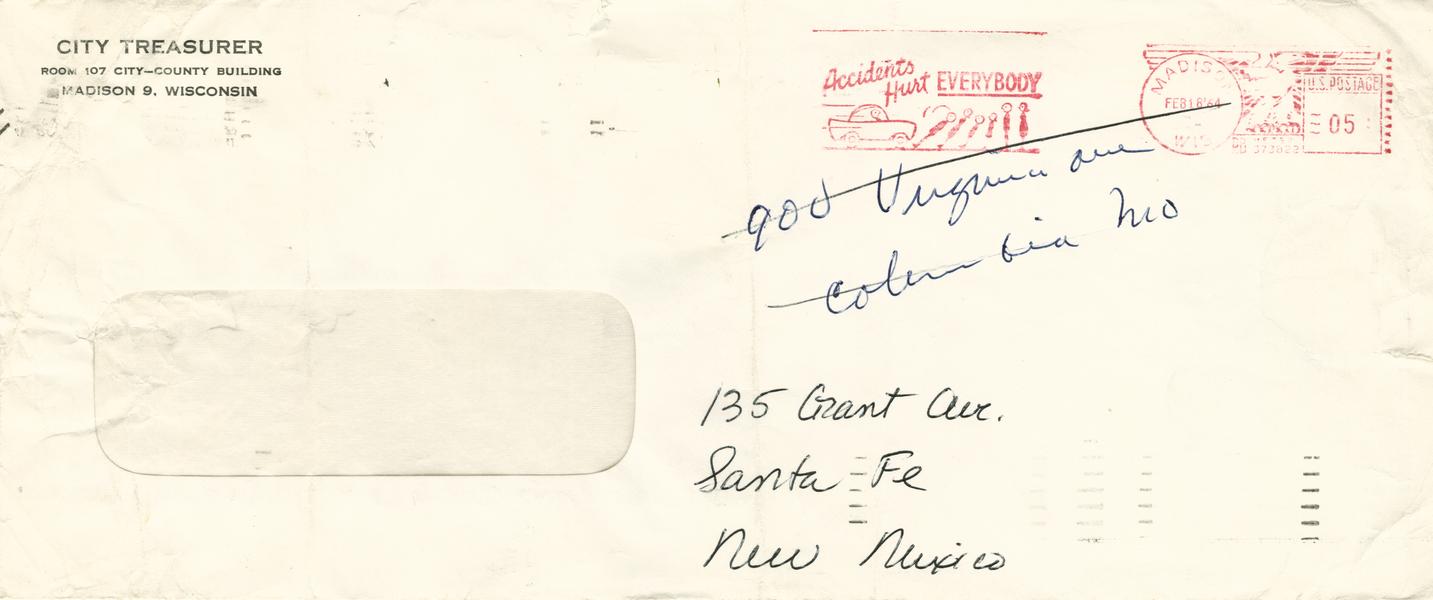 CITY TREASURER
ROOM 107 CITY—COUNTY BUILDING
MADISON 9, WISCONSIN
Accidents
Hurt EVERYBODY
MADISON
FEB18'64
WIS
U.S.POSTAGE
05
PB 373822
Virginia ave
Columbia Mo
135 Grant Ave.
Santa Fe
New Mexico